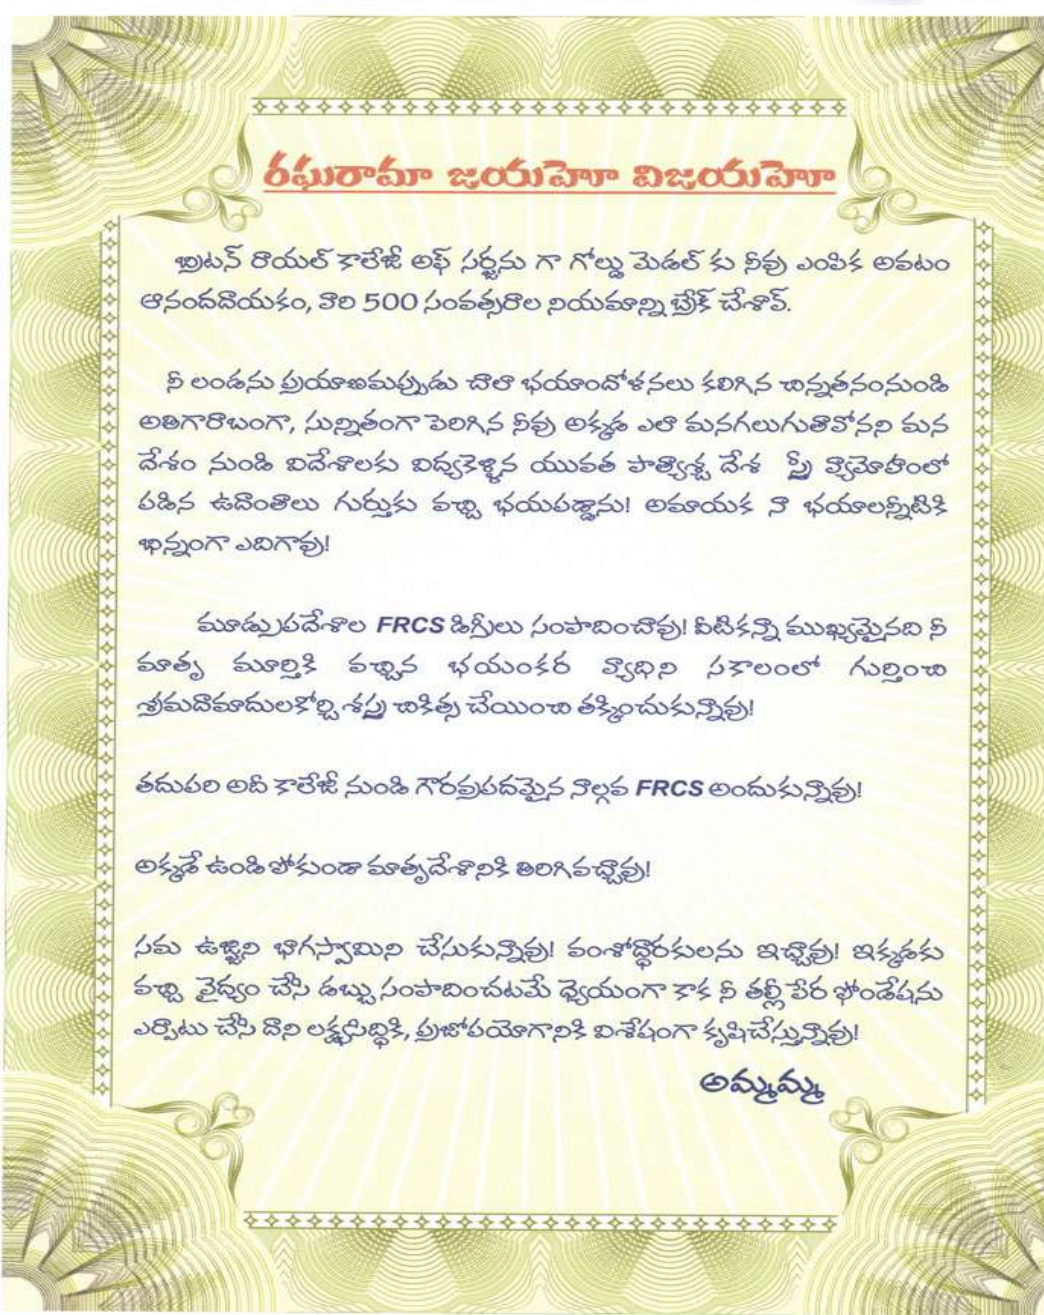 రఘురామా జయహో విజయహో
బ్రిటన్ రాయల్ కాలేజీ అఫ్ సర్జను గా గోల్డు మెడల్ కు నీవు ఎంపిక అవటం
ఆనందదాయకం, వారి 500 సంవత్సరాల నియమాన్ని బ్రేక్ చేశావ్.
నీ లండను ప్రయాణమప్పుడు చాలా భయాందోళనలు కలిగిన చిన్నతనంనుండి
అతిగారాబంగా, సున్నితంగా పెరిగిన నీవు అక్కడ ఎలా మనగలుగుతావోనని మన
దేశం నుండి విదేశాలకు విద్యకెళ్ళిన యువత పాశ్చాత్య దేశ స్త్రీ వ్యామోహంలో
పడిన ఉదంతాలు గుర్తుకు వచ్చి భయపడ్డాను! అమాయక నా భయాలన్నీటికి
భిన్నంగా ఎదిగావు!
మూడ్రుపదేశాల FRCS డిగ్రీలు సంపాదించావు! వీటికన్నా ముఖ్యమైనది నీ
మాతృ మూర్తికి వచ్చిన భయంకర వ్యాధిని సకాలంలో గుర్తించి
శ్రమదామాదులకోర్చి శస్త్ర చికిత్స చేయించి తక్కించుకున్నావు!
తదుపరి అదీ కాలేజీ నుండి గౌరవప్రదమైన నాల్గవ FRCS అందుకున్నావు!
అక్కడే ఉండి పోకుండా మాతృదేశానికి తిరిగివచ్చావు!
సమ ఉజ్జిని భాగస్వామిని చేసుకున్నావు! వంశోద్ధారకులను ఇచ్చావు! ఇక్కడకు
వచ్చి వైద్యం చేసి డబ్బు సంపాదించటమే ధ్యేయంగా కాక నీ తల్లీ పేర ఫోండేషను
ఎర్పాటు చేసి దాని లక్ష్యసిద్ధికి, ప్రజోపయోగానికి విశేషంగా కృషిచేస్తున్నావు!
అమ్మమ్మ